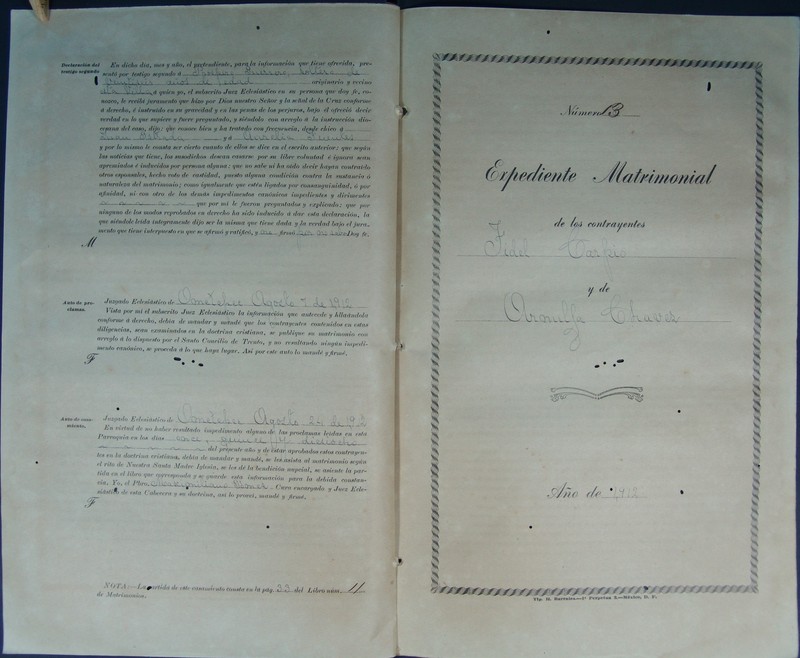 Declaración del
testigo segundo
En dicho dia, mes y año, el pretendiente, para la información que tiene ofrecida, pre-
sentó por testigo segundo á
originario y vecino
á quien yo, el subscrito Juez Eclesiástico en su persona que doy fe, co-
nozco, le recibí juramento que hizo por Dios nuestro Señor y la señal de la Cruz conforme
á derecho, é instruido en su gravedad y en las penas de los perjuros, bajo él ofreció decir
verdad en lo que supiere y fuere preguntado, y siéndolo con arreglo á la instrucción dio-
cesana del caso, dijo: que conoce bien y ha tratado con frecuencia, desde chico á
y á
y por lo mismo le consta ser cierto cuanto de ellos se dice en el escrito anterior: que según
las noticias que tiene, los susodichos desean casarse por su libre voluntad é ignora sean
apremiados ó inducidos por persona alguna: que no sabe ni ha oido decir hayan contraído
otros esponsales, hecho voto de castidad, puesto alguna condición contra la sustancia ó
naturaleza del matrimonio; como igualmente que estén ligados por consanguinidad, ó por
afinidad, ni con otro de los demás impedimentos canónicos impedientes y dirimentes
que por mí le fueron preguntados y explicados; que por
ninguno de los modos reprobados en derecho ha sido inducido á dar esta declaración, la
que siéndole leída íntegramente dijo ser la misma que tiene dada y la verdad bajo el jura-
mento que tiene interpuesto en que se afirmó y ratificó, y no firmó por no saber Doy fe.
M
Auto de pro-
clamas.
Juzgado Eclesiástico de Ometepec Agosto 7 de 1912
Vista por mí el subscrito Juez Eclesiástico la información que antecede y hallándola
conforme á derecho, debía de mandar y mandé que los contrayentes contenidos en estas
diligencias, sean examinados en la doctrina cristiana, se publique su matrimonio con
arreglo á lo dispuesto por el Santo Concilio de Trento, y no resultando ningún impedi-
mento canónico, se proceda á lo que haya lugar. Así por este auto lo mandé y firmé.
F
Auto de casa-
miento.
Juzgado Eclesiástico de Ometepec Agosto 24 de 1912
En virtud de no haber resultado impedimento alguno de las proclamas leidas en esta
Parroquia en los días once, quince y dieciocho
del presente año y de estar aprobados estos contrayen-
tes en la doctrina cristiana, debía de mandar y mandé, se les asista al matrimonio según
el rito de Nuestra Santa Madre Iglesia, se les dé la bendición nupcial, se asiente la par-
tida en el libro que corresponda y se guarde esta información para la debida constan-
cia. Yo, el Pbro. Maximiliano Gomez Cura encargado y Juez Ecle-
siástico de esta Cabecera y su doctrina, así lo proveí, mandé y firmé.
F
NOTA.—La partida de este casamiento consta en la pág. 22 del Libro núm. 11
de Matrimonios.
Número 13
Expediente Matrimonial
de los contrayentes
Fidel
y de
Arnulfa Chavez
Año de 1912